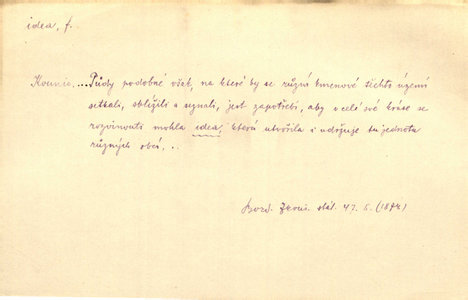 idea, f.
Kounic, ... Půdy podobné však, na které by se různí kmenové těchto území
setkali, sblížili a seznali, jest zapotřebí, aby v celé své kráse se
rozvinouti mohla idea, která utvořila i udržuje tu jednotu
různých obcí, ..
zkuš. stát. 47. 5. (1874)